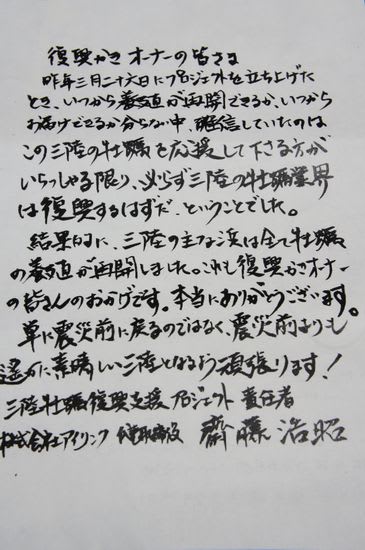 復興かきオーナーの皆さま
昨年三月二十六日にプロジェクトを立ち上げた
とき、いつから養殖が再開できるか、いつから
お届けできるか分らない中、確信していたのは
この三陸の牡蠣を応援して下さる方が
いらっしゃる限り、必らず三陸の牡蠣業界
は復興するはずだ、ということでした。
結果的に、三陸の主な浜は全て牡蠣
の養殖が再開しました。これも復興かきオーナー
の皆さんのおかげです。本当にありがとうございます。
単に震災前に戻るのではなく、震災前よりも
遥かに素晴しい三陸となるよう頑張ります!
三陸牡蠣復興支援プロジェクト 責任者
株式会社アイリンク 代表取締役 齋藤浩昭